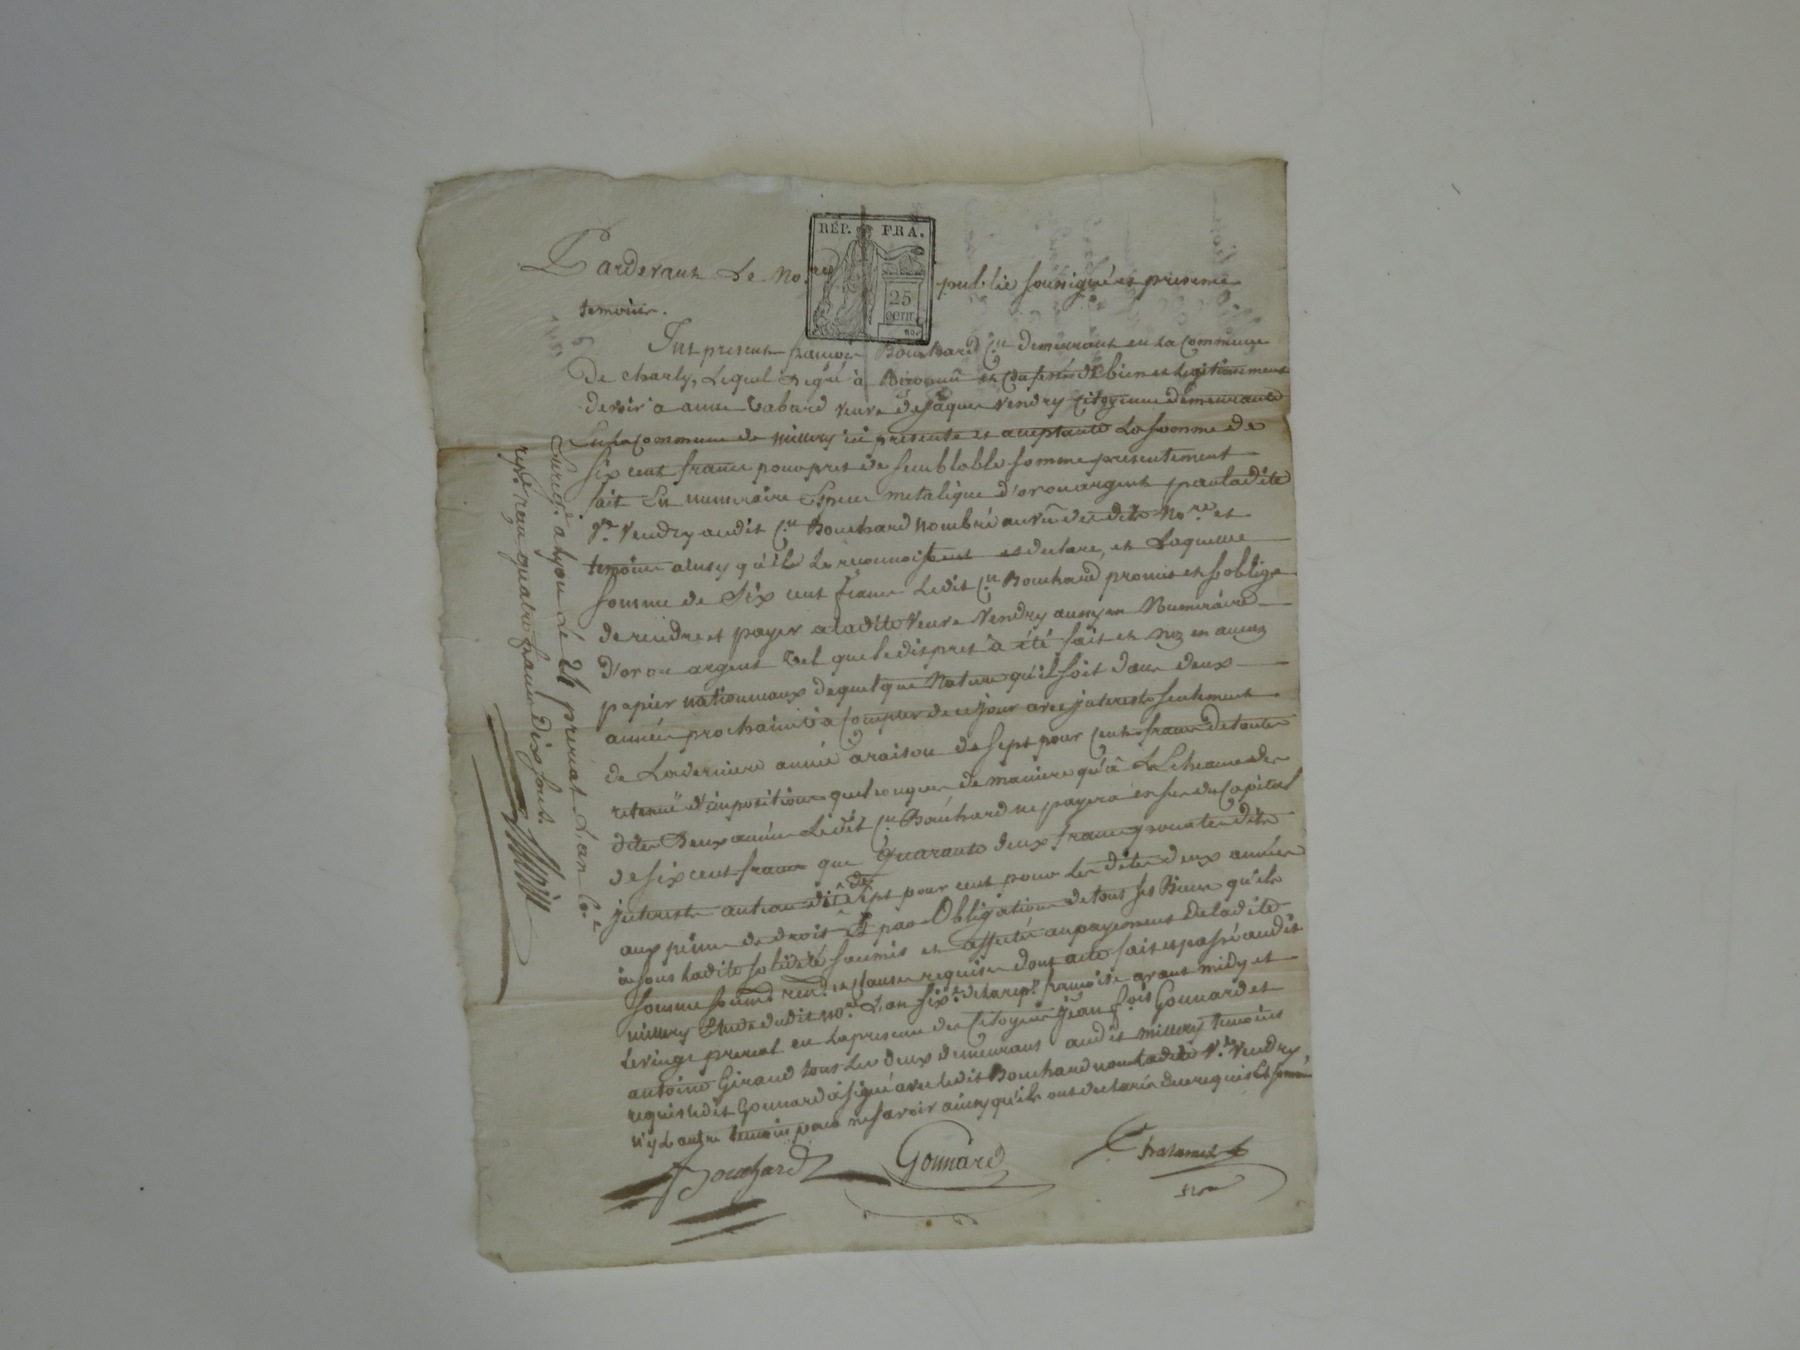 RÉP. FRA.
25
cent.
Pardevant Le No.re public soussigné et presence
temoins.
Fut present francois Bouchard C.en demeurant en la Commune
de charly, Lequel degré à Reconnû et Confessé bien et legitimement
devoir a anne tabard veuve de Jâques Vendry Citoyenne demeurante
En la Commune de millery ici presente et acceptante La somme de
six cent francs pour pret de semblable somme presentement
fait En numeraire Espece metalique d'or ou argent par ladite
V.e Vendry audit C.en Bouchard nombré au vû des dits No.re et
temoins ainsy qu'il Le reconnoit et declare, et Laquelle
somme de Six cent francs Ledit C.en Bouchard promet et s'oblige
de rendre et payer a ladite Veuve Vendry aussy en Numeraire
D'or ou argent tel que le dit pret à été fait et non en aucuns
papier nationnaux de quelque Nature qu'il soit dans deux
années prochaines à Compter de ce jour avec interests seulement
de La derniere année a raison de sept pour Cent francs de toutes
retenuë d'impositions quelconques de maniere qu'à L'Echeance des
dites Deux années Ledit C.en Bouchard ne payera en sus du Capital
de six cent francs que Quarante deux francs pour les dits
interests au taux de sept pour cent pour Les dites deux années
aux peines de droit Et par Obligation de tous ses Biens qu'ils
à sous ladite soumis et affectés au payement de ladite
somme et clauses requises dont acte fait et passé audit
millery Etude dudit No.re L'an Six.e de la rep.e francoise avant midy et
Le vingt prerial en la presence des Citoyens Jean f.cois Gonnard et
antoine Giraud tous Les deux demeurans audit millery temoins
requis Ledit Gonnard à signé avec ledit Bouchard non ladite V.e Vendry
n'y L'autre temoin pour ne savoir ainsy qu'ils ont declaré de ce requis Et sommés
Bouchard Gonnard
Enreg.é a Lyon Le 24 prerial L'an 6.e
reçu quatre francs dix sous